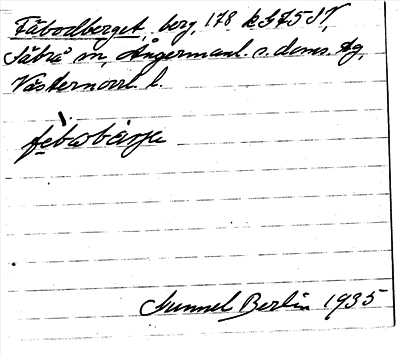 Fäbodberget, berg, 178 k G I 5 SV,
Säbrå sn, Ångermanl. s. doms. tg,
Västernorrl. l.
fèbωbárje
Gunnel Berlin 1935